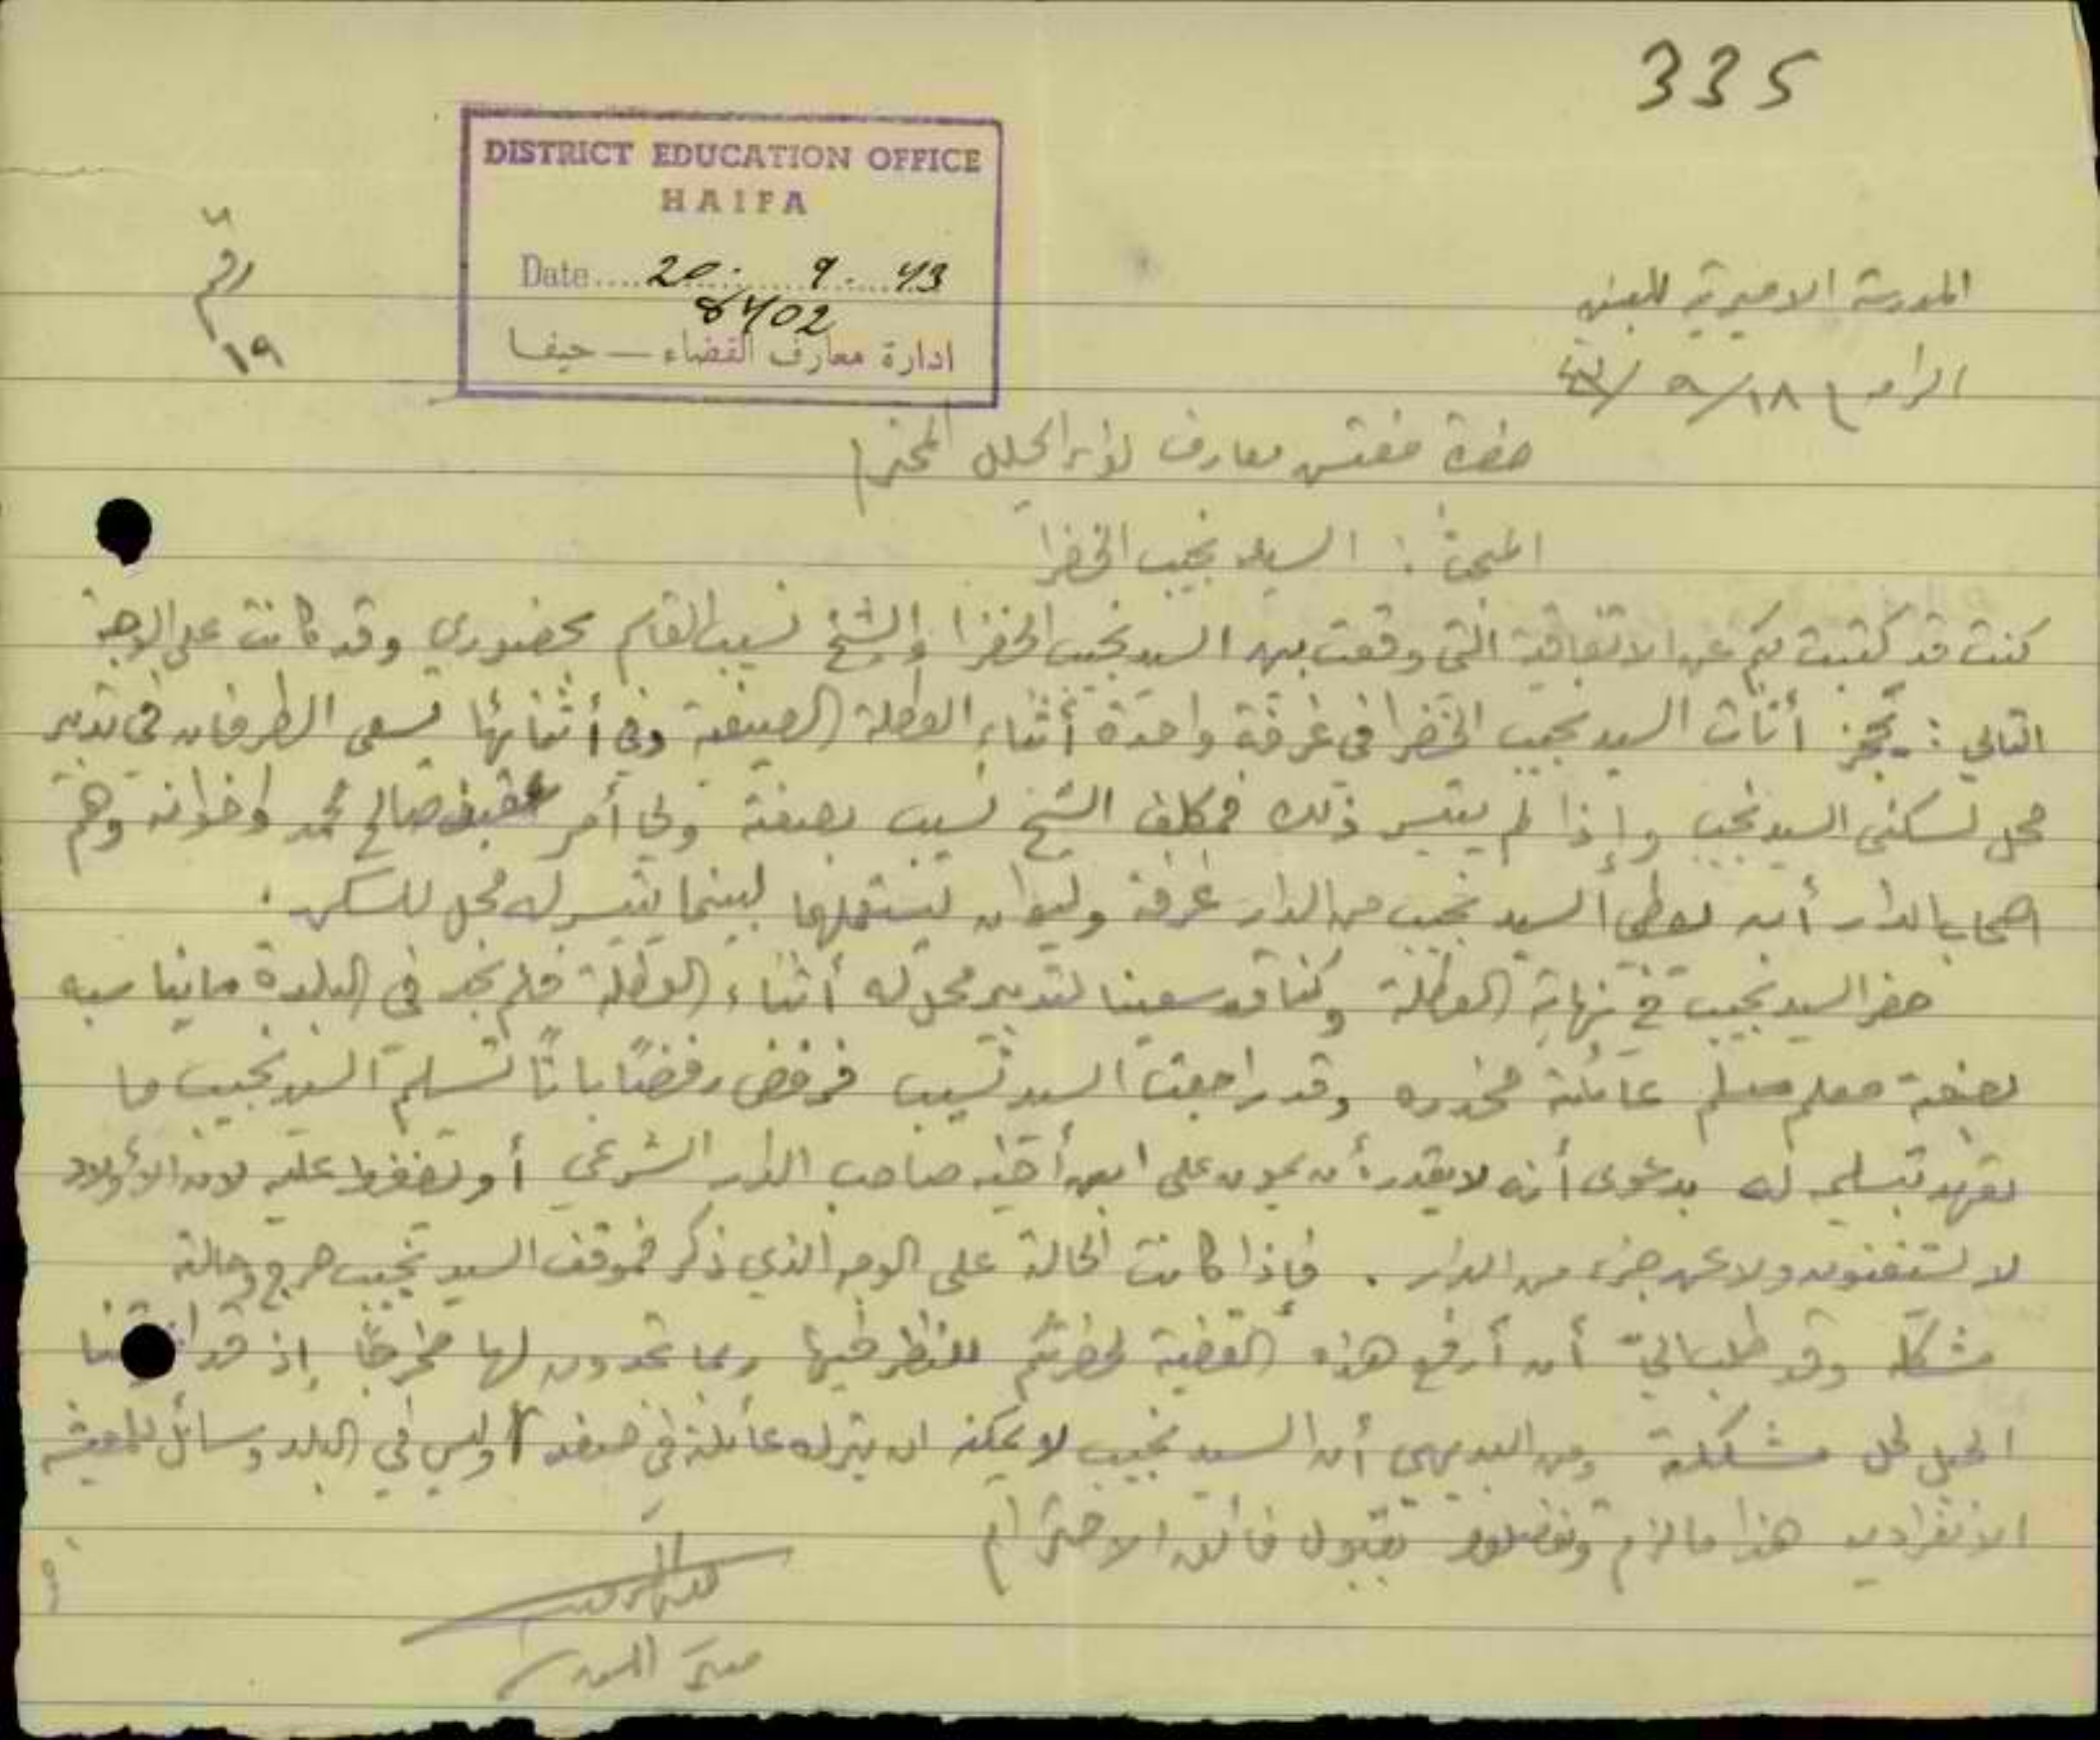 335
DISTRICT EDUCATION OFFICE
HAIFA
Date.... 20. 9. 43
8402
ادارة معارف القضاء — حيفا
رقم
١٩
المدرسة الاميرية للبنين
الرامه ١٨/٩/٤٣
حضرة مفتش معارف لواء الجليل المحترم
المبحث : السيد نجيب الخضرا
كنت قد كتبت لكم عن الاتفاقية التي وقعت بين السيد نجيب الخضرا والشيخ نسيب القاسم بحضوري وقد كانت على الوجه
التالي : يحجز أثاث السيد نجيب الخضرا في غرفة واحدة أثناء العطلة الصيفية وفي أثنائها يسعى الطرفان في تدبير
محل لسكنى السيد نجيب وإذا لم يتيسر ذلك فمكلف الشيخ نسيب بصفته ولي أمر صالح محمد واخوانه وهم
اصحاب الدار أن يعطي السيد نجيب من الدار غرفة وليوان يستعملهما لبينما يتيسر له محل للسكن .
حضر السيد نجيب في نهاية العطلة وكنا قد سعينا لتدبير محل له أثناء العطلة فلم نجد في البلدة ما يناسبه
بصفته معلم مسلم عائلته مخدره وقد راجعت السيد نسيب فرفض رفضاً باتاً تسليم السيد نجيب ما
تعهد تسليمه له بدعوى أنه لا يقدر أن يمون على ابن أخيه صاحب الدار الشرعي أو يضغط عليه لان الأولاد
لا يستغنون ولا عن جزء من الدار . فإذا كانت الحالة على الوجه الذي ذكر فموقف السيد نجيب حرج وحالته
مشكلة وقد طلب اليّ أن أرفع هذه القضية لحضرتكم للنظر فيها ربما تجدون لها مخرجاً إذ قد
الحيل لحل مشكلته ومن البديهي أن السيد نجيب لا يمكنه ان يترك عائلته في صفد وليس في البلد وسائل للمعيشة
الانفرادية هذا ما لزم وتفضلوا بقبول فائق الاحترام
مدير المدرسة